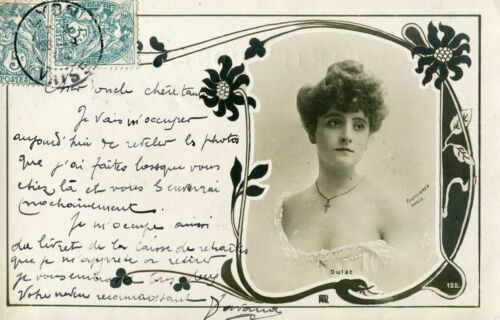 LYON
POSTES
Cher oncle chère tante
Je vais m'occuper
aujourd'hui de révéler les photos
que j'ai faites lorsque vous
étiez là et vous l'enverrai
prochainement.
Je m'occupe aussi
du livret de la caisse de retraites
que je m'apprête à retirer
je vous
Votre neveu reconnaissant
REUTLINGER
PARIS.
Dulac
132.